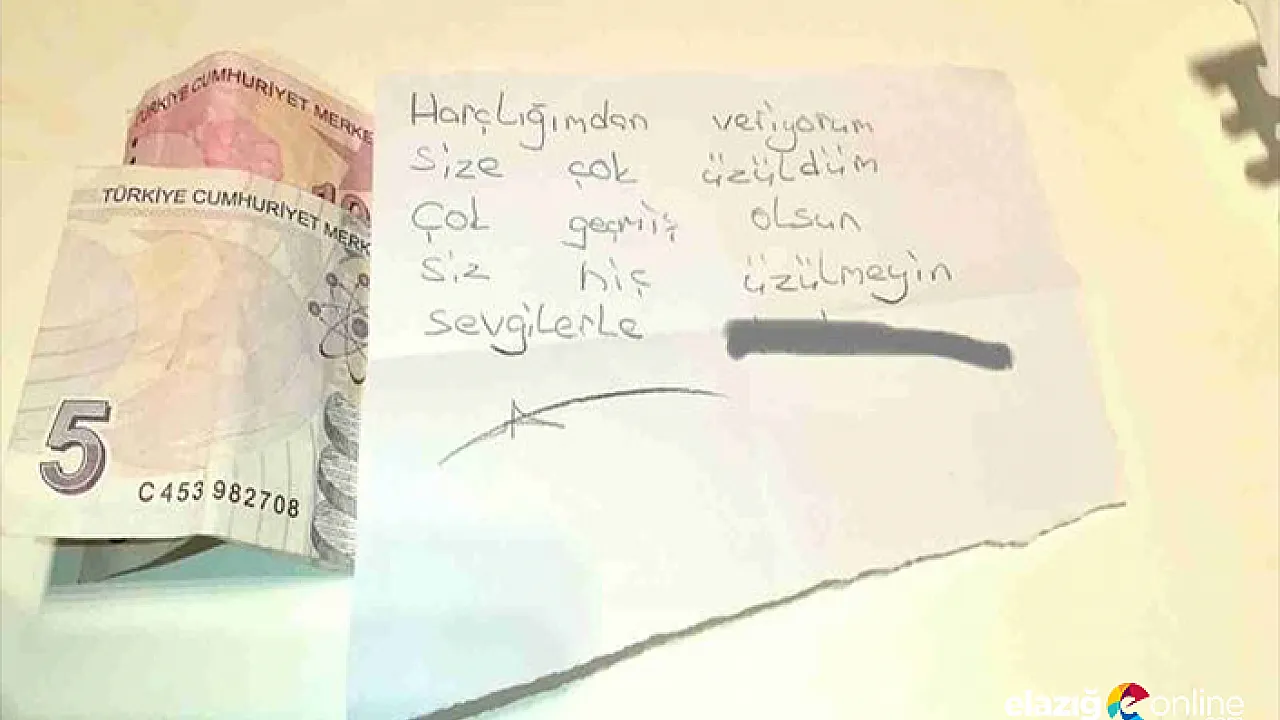 TÜRKİYE CUMHURİYET MERKE
TÜRKİYE CUMHURİYET MERK
5
C453 982708
Harçlığımdan veriyorum
Size çok üzüldüm
Çok geçmiş olsun
Siz hiç üzülmeyin
Sevgilerle
elazığ e online